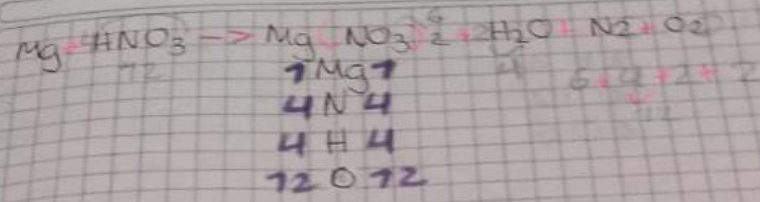 Mg + 4HNO3 -> Mg(NO3)2 + 2H2O + N2 + O2
12 6 4 6+4+2+ 2
1 Mg 1
4 N 4
4 H 4
12 O 12